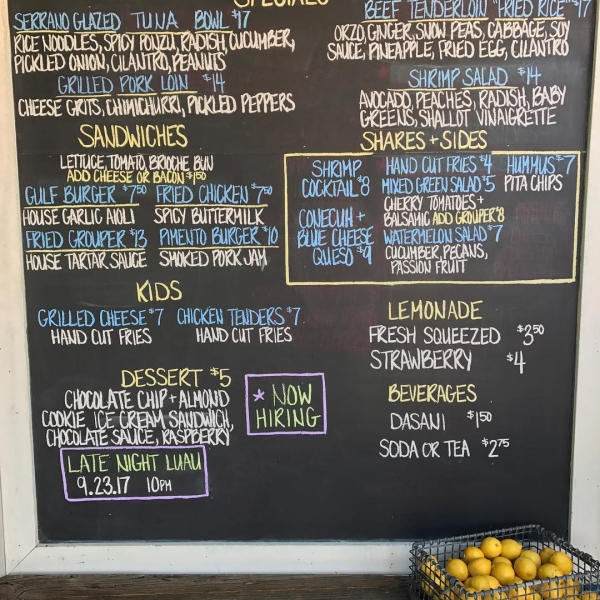 SPECIALS
SERRANO GLAZED TUNA BOWL $17
RICE NOODLES, SPICY PONZU, RADISH, CUCUMBER,
PICKLED ONION, CILANTRO, PEANUTS
GRILLED PORK LOIN $14
CHEESE GRITS, CHIMICHURRI, PICKLED PEPPERS
BEEF TENDERLOIN "FRIED RICE" $17
ORZO, GINGER, SNOW PEAS, CABBAGE, SOY
SAUCE, PINEAPPLE, FRIED EGG, CILANTRO
SHRIMP SALAD $14
AVOCADO, PEACHES, RADISH, BABY
GREENS, SHALLOT VINAIGRETTE
SANDWICHES
LETTUCE, TOMATO, BRIOCHE BUN
ADD CHEESE OR BACON $1.50
GULF BURGER $7.50
HOUSE GARLIC AIOLI
FRIED CHICKEN $7.50
SPICY BUTTERMILK
FRIED GROUPER $13
HOUSE TARTAR SAUCE
PIMENTO BURGER $10
SMOKED PORK JAM
SHARES + SIDES
SHRIMP
COCKTAIL $8
CONECUH +
BLUE CHEESE
QUESO $9
HAND CUT FRIES $4
MIXED GREEN SALAD $5
CHERRY TOMATOES +
BALSAMIC ADD GROUPER $8
WATERMELON SALAD $7
CUCUMBER, PECANS,
PASSION FRUIT
HUMMUS $7
PITA CHIPS
KIDS
GRILLED CHEESE $7
HAND CUT FRIES
CHICKEN TENDERS $7
HAND CUT FRIES
LEMONADE
FRESH SQUEEZED $3.50
STRAWBERRY $4
DESSERT $5
CHOCOLATE CHIP + ALMOND
COOKIE ICE CREAM SANDWICH,
CHOCOLATE SAUCE, RASPBERRY
* NOW
HIRING
BEVERAGES
DASANI $1.50
SODA OR TEA $2.75
LATE NIGHT LUAU
9.23.17 10PM